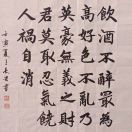 飲酒不醉最為
高好色不亂乃
英豪無義之財
君莫取忍氣饒
人禍自消